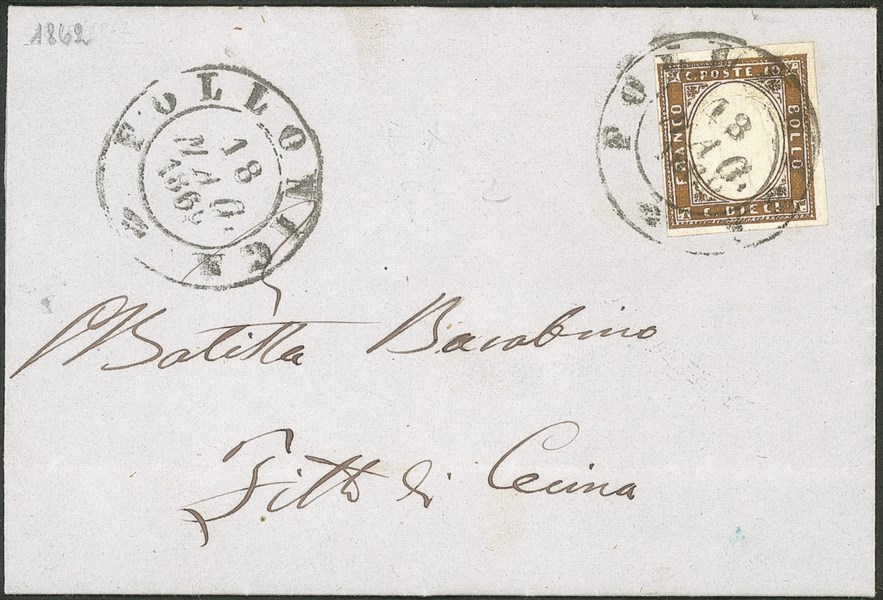 1862
FOLLONICA
18
MAG.
1862
FOLL
18
AG.
C. POSTE 10
FRANCO
BOLLO
C. DIECI
Batista Barabino
Fitto di Cecina